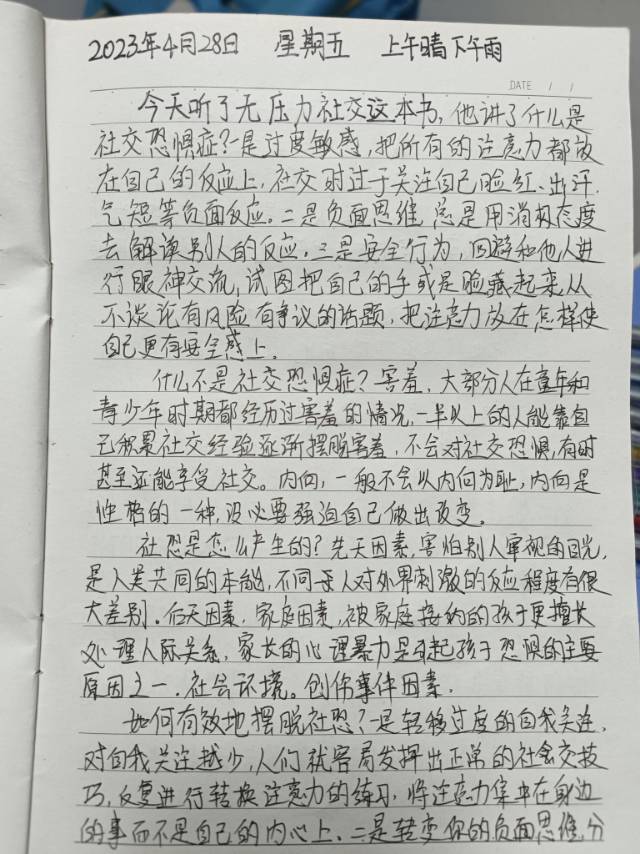 2023年4月28日 星期五 上午晴下午雨
DATE / /
今天听了无压力社交这本书，他讲了什么是
社交恐惧症？一是过度敏感，把所有的注意力都放
在自己的反应上，社交时过于关注自己脸红、出汗、
气短等负面反应。二是负面思维，总是用消极态度
去解读别人的反应。三是安全行为，回避和他人进
行眼神交流，试图把自己的手或是脸藏起来，从
不谈论有风险有争议的话题，把注意力放在怎样使
自己更有安全感上。
什么不是社交恐惧症？害羞，大部分人在童年和
青少年时期都经历过害羞的情况，一半以上的人能靠自
己积累社交经验逐渐摆脱害羞，不会对社交恐惧，有时
甚至还能享受社交。内向，一般不会以内向为耻，内向是
性格的一种，没必要强迫自己做出改变。
社恐是怎么产生的？先天因素，害怕别人审视的目光，
是人类共同的本能，不同 人对外界刺激的反应程度有很
大差别。后天因素，家庭因素，被家庭接纳的孩子更擅长
处理人际关系，家长的心理暴力是引起孩子恐惧的主要
原因之一。社会环境。创伤事件因素。
如何有效地摆脱社恐？一是转移过度的自我关注，
对自我关注越少，人们就容易发挥出正常的社会交技
巧，反复进行转换注意力的练习，将注意力集中在身边
的事而不是自己的内心上。二是转变你的负面思维，分